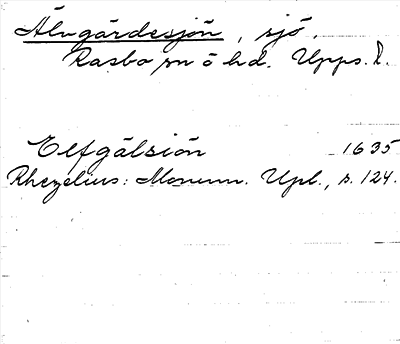 Älvgärdesjön, sjö,
Rasbo sn o hd. Upps. l.
Elfgälsiön 1635
Rhezelius: Monum. Upl., s. 124.